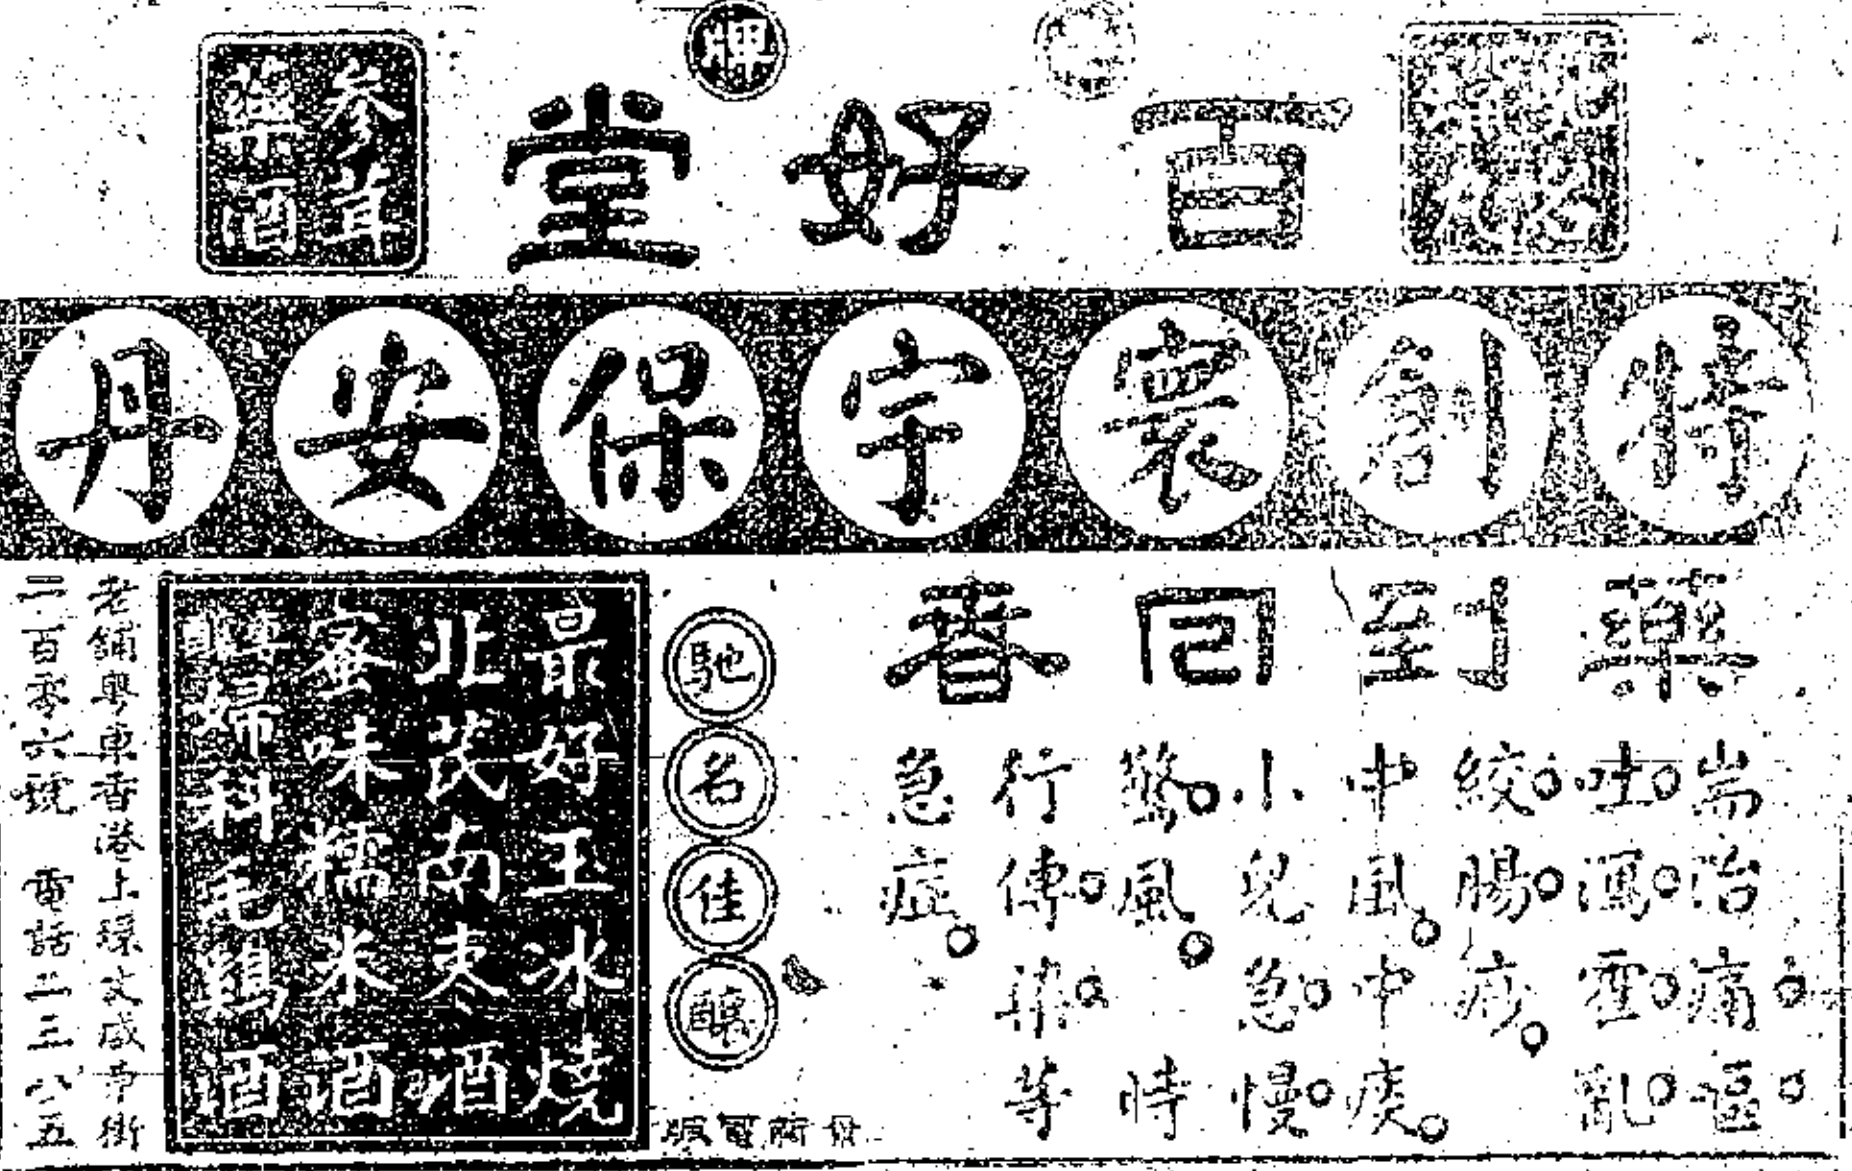 百好堂
牌
參茸
藥酒
特創寰宇保安丹
藥到回春
耑治痛
吐瀉霍亂
絞腸痧
中風中痰
小兒急慢
驚風時
行傳染等
急症
馳名佳釀
最好玉冰燒
北芪南棗酒
蜜味糯米酒
婦科毛雞酒
老舖粵東香港上環文咸東街
電話二三八五